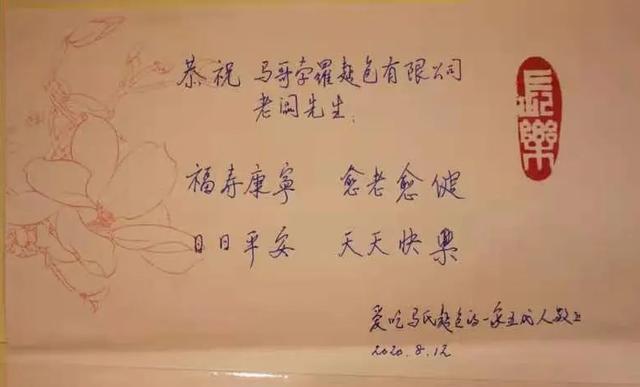 恭祝 马哥孛罗麵包有限公司
老闆先生:
福寿康寧 愈老愈健
日日平安 天天快樂
爱吃马氏麵包的一家五代人敬上
2020.8.12
長樂